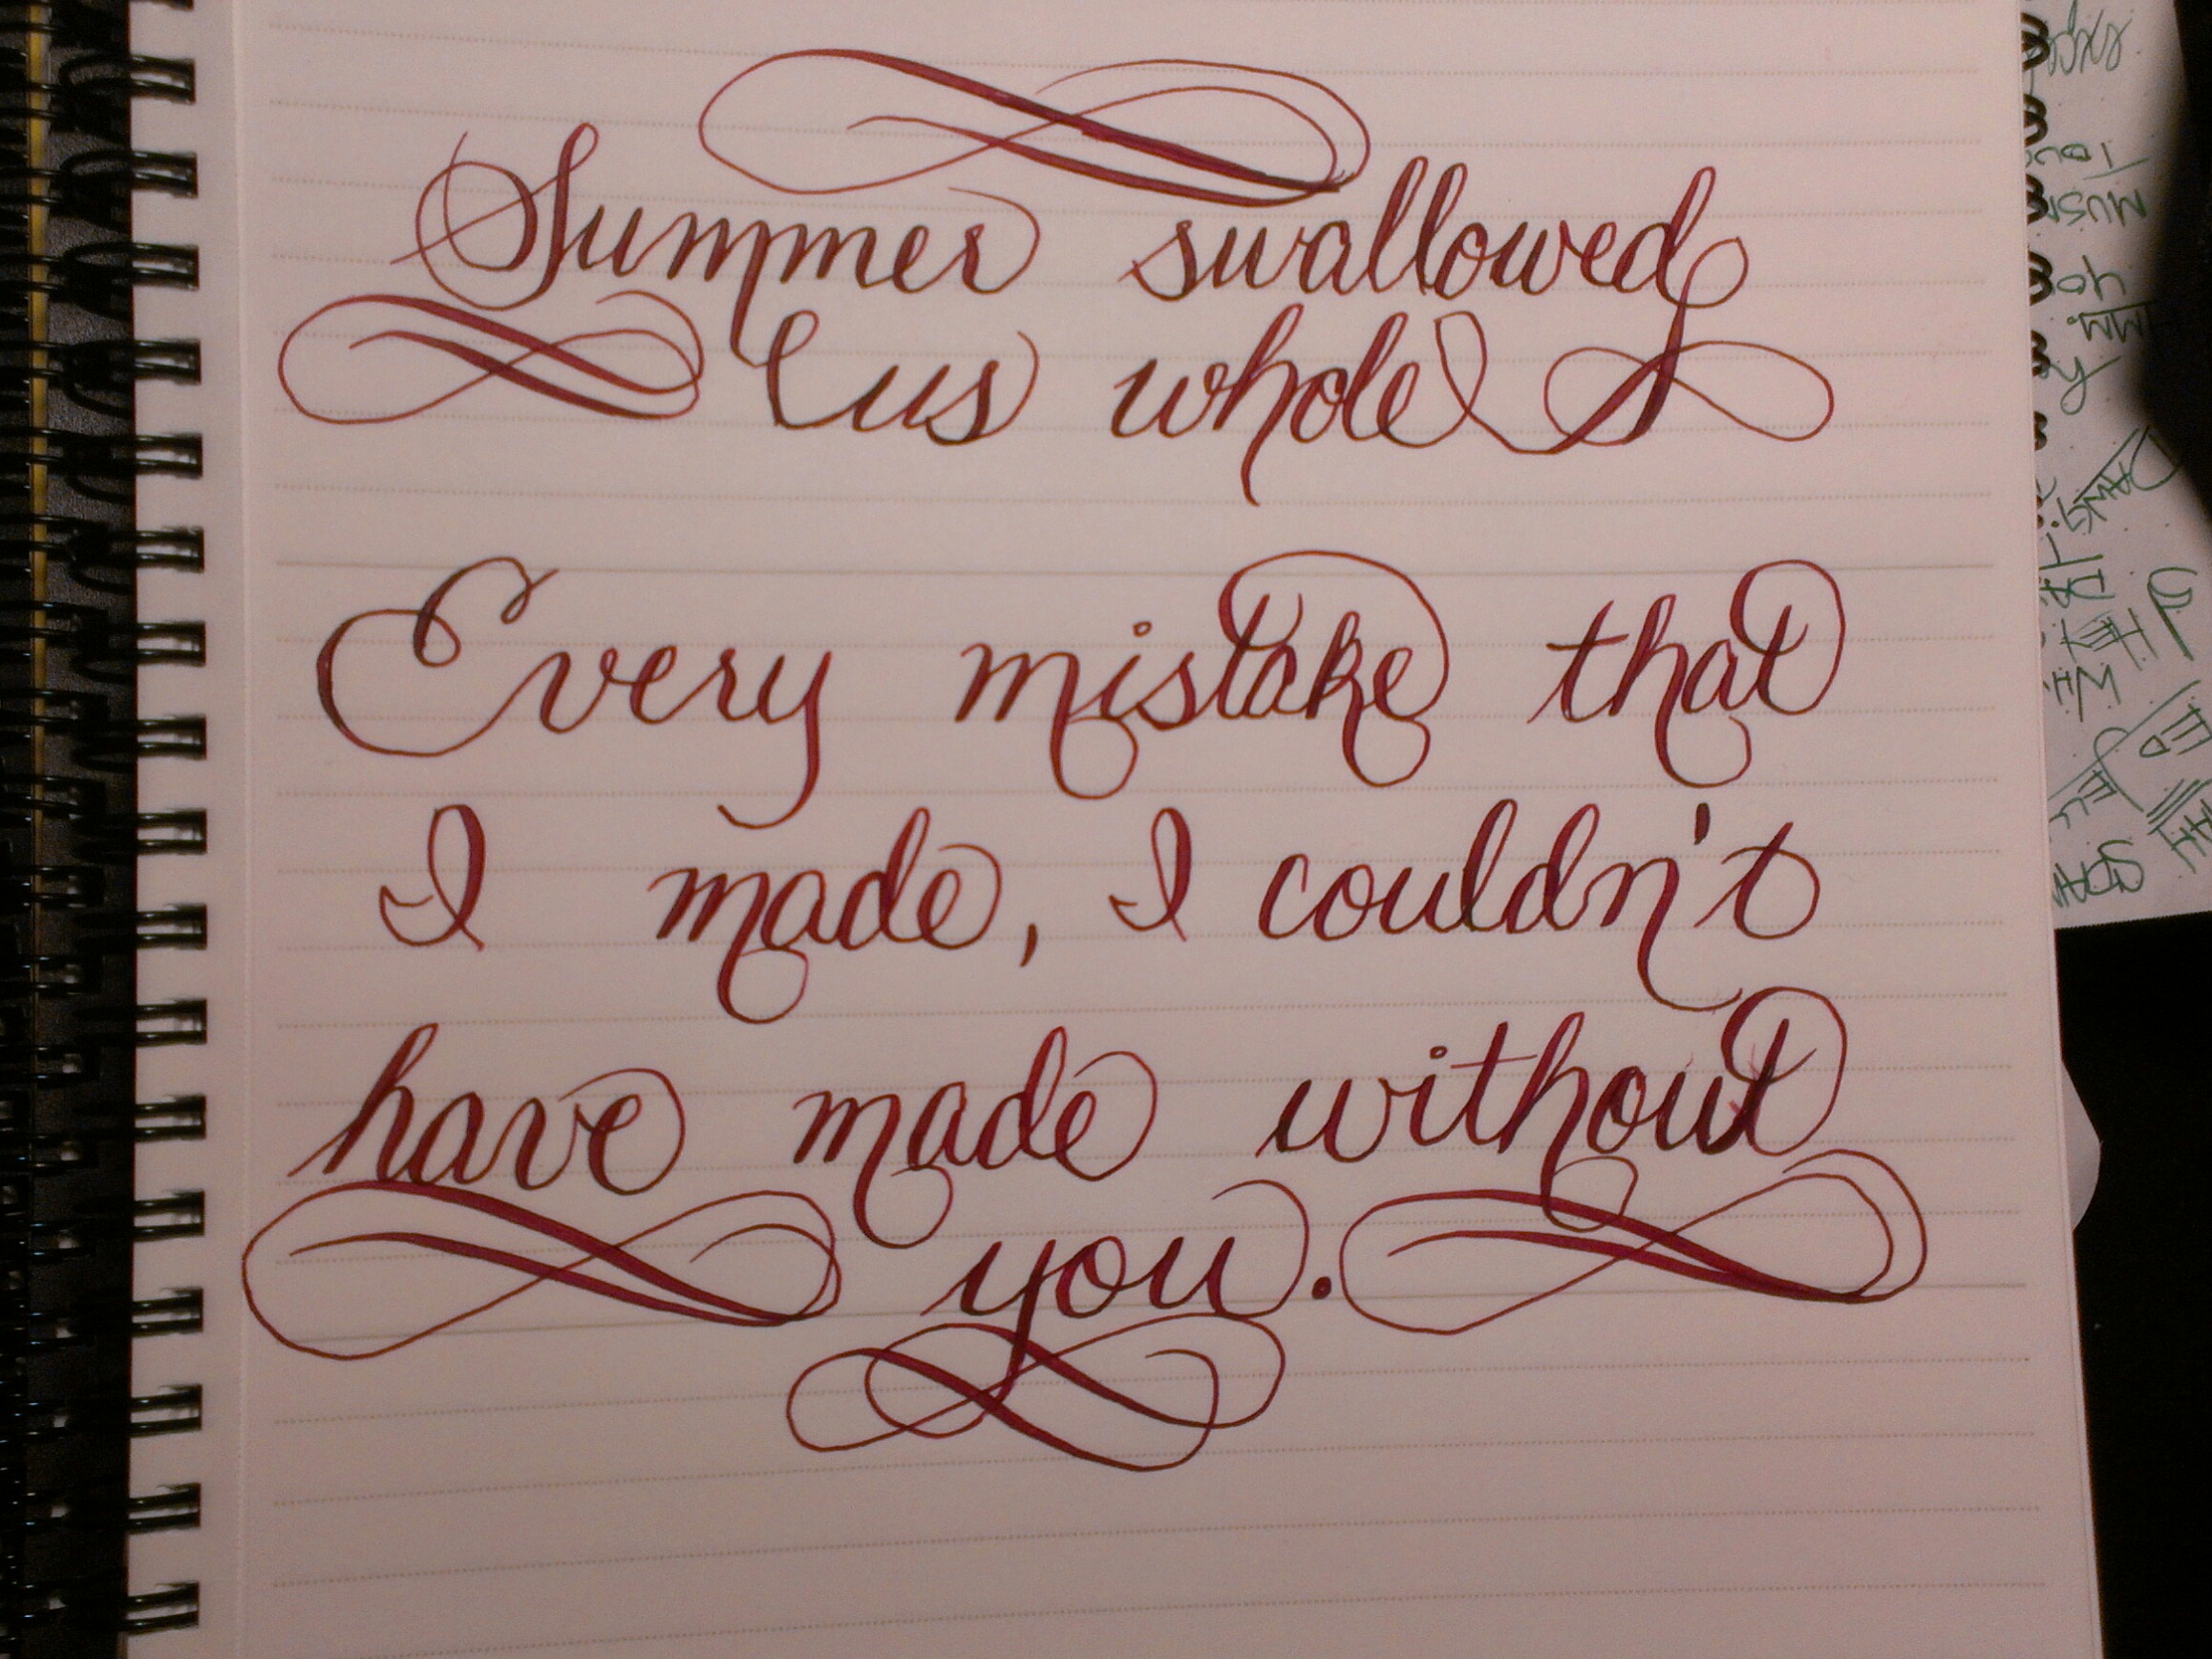 Summer swallowed
us whole
Every mistake that
I made, I couldn't
have made without
you.